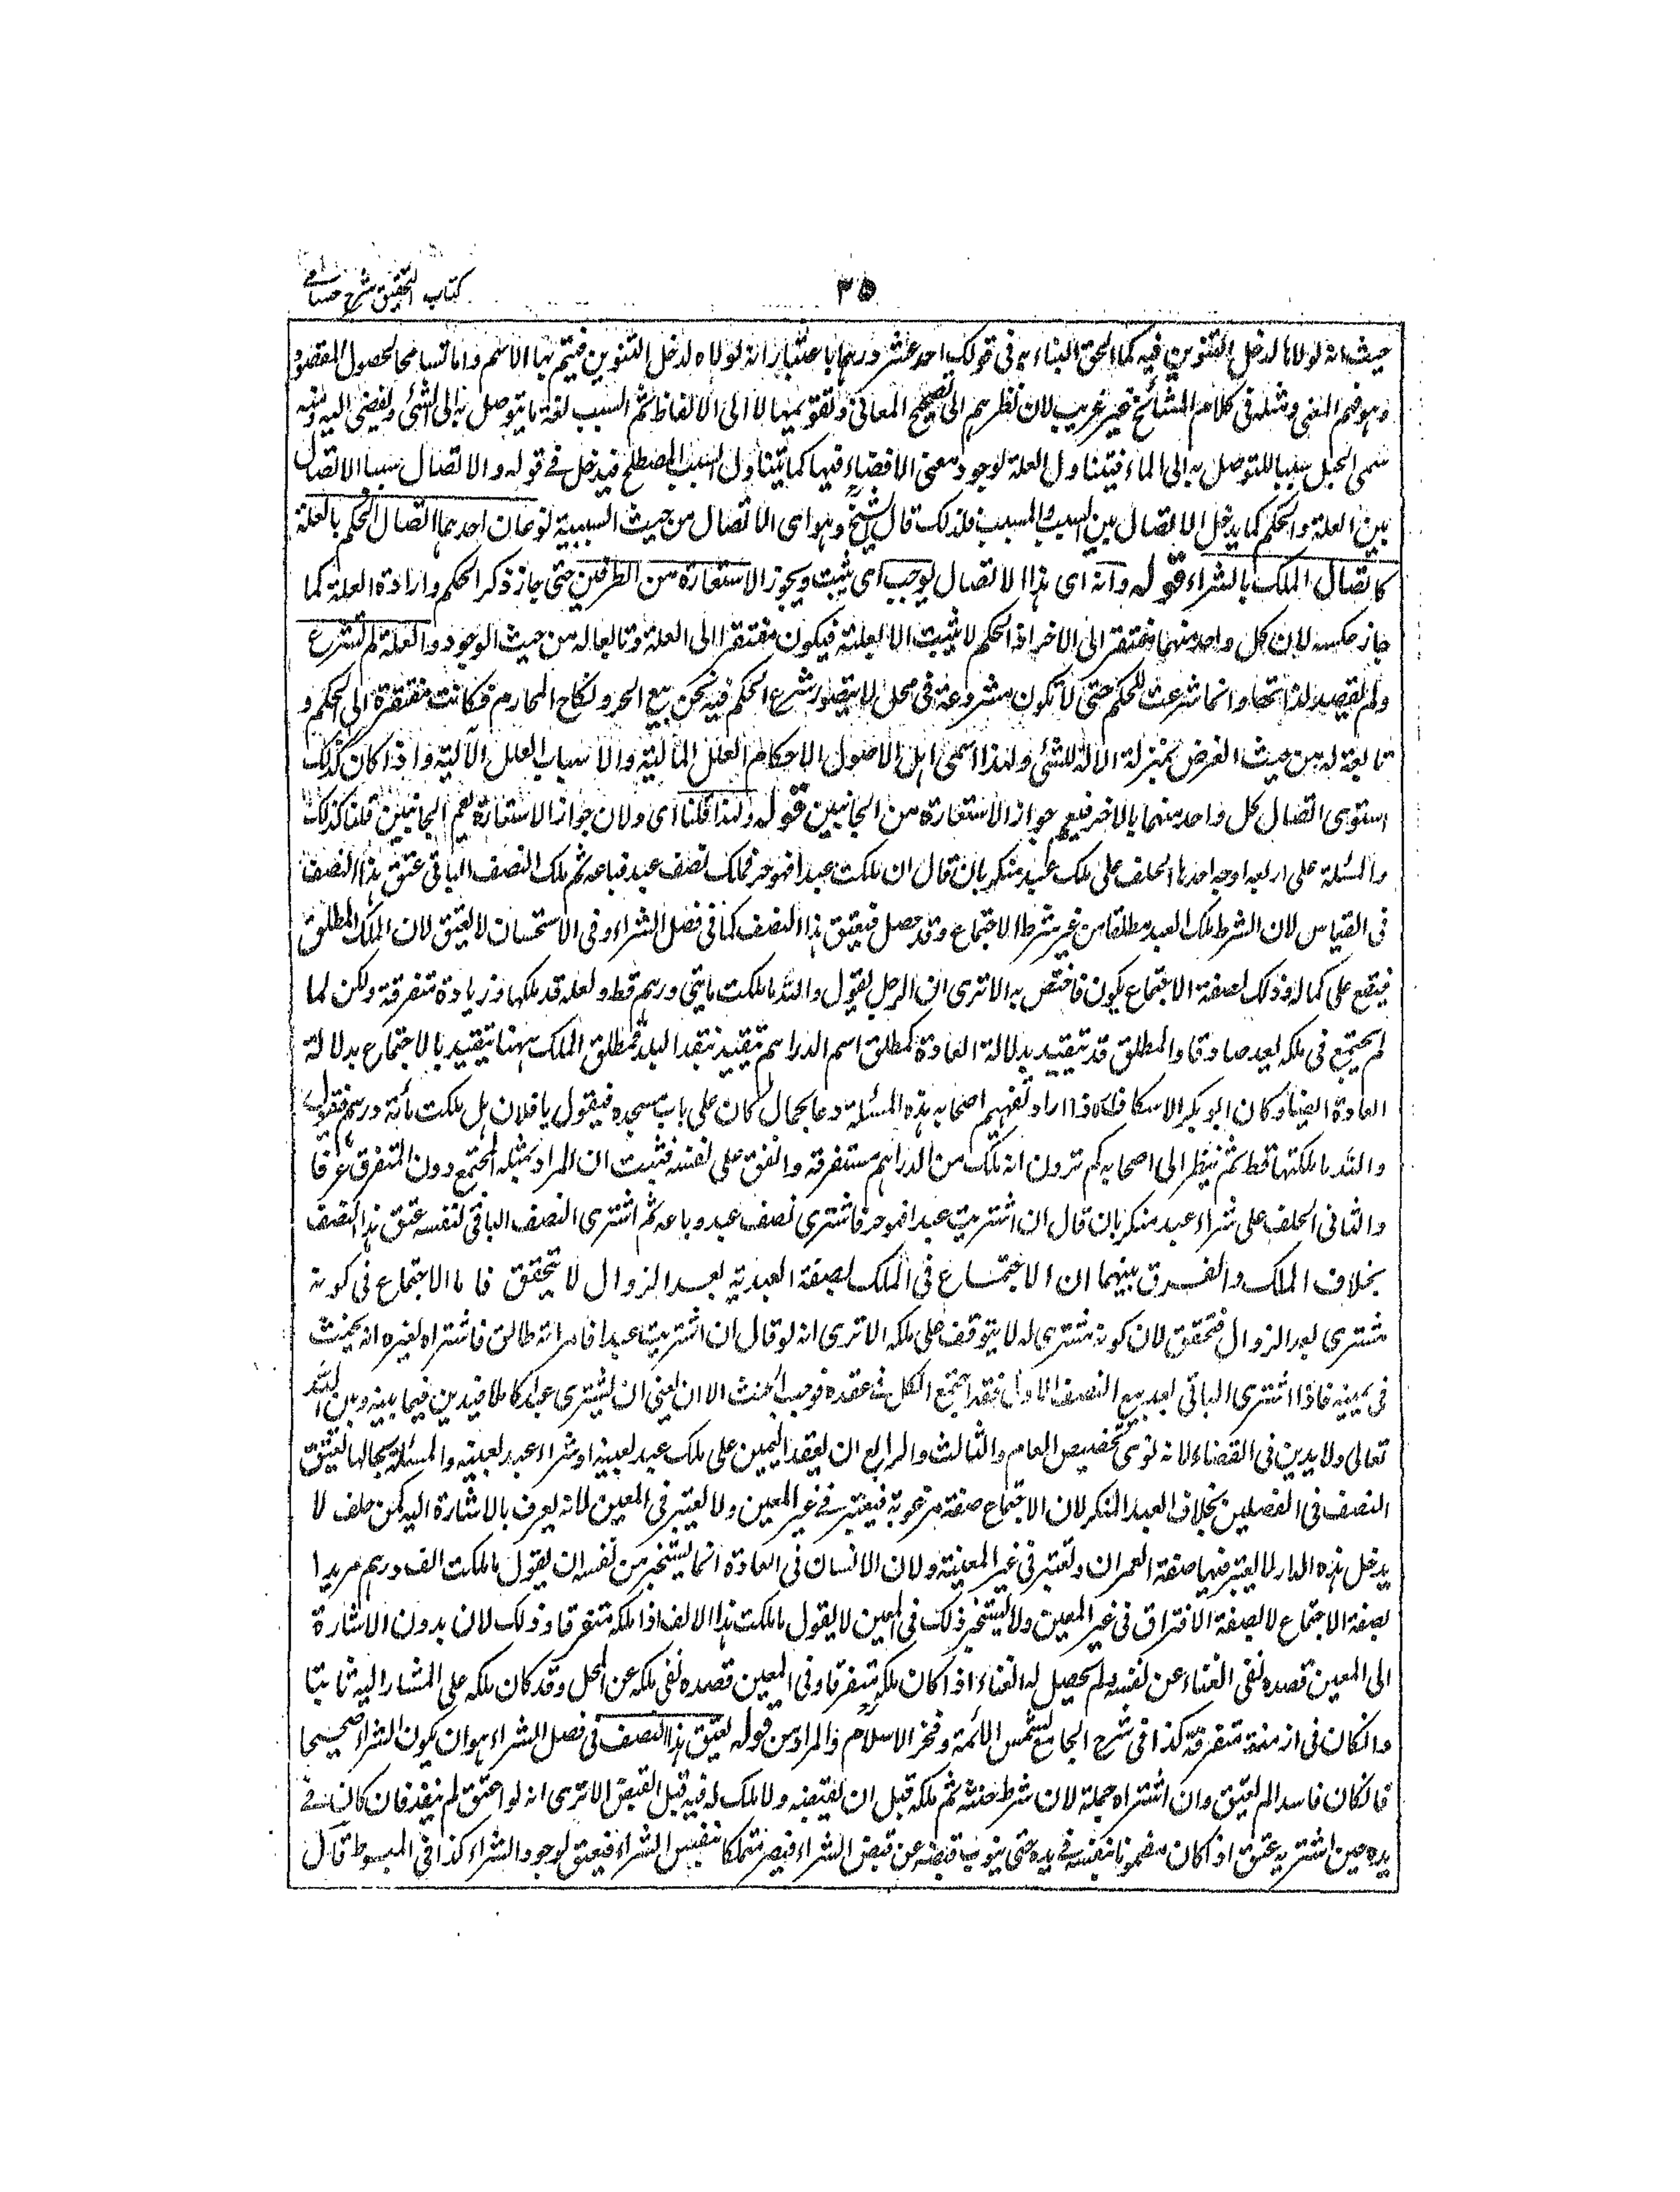 كتاب التحقيق شرح حسامي
٣٥
حيث انه لولا ما لدخل التنوين فيه كما الحق البناء به فى قولك احد عشر درهما باعتبار انه لولاه لدخل التنوين فيتم بها الاسم واما تسامحا لحصول المقصود
وهو فهم المعنى ومثله فى كلام المشائخ غير غريب لان نظرهم الى تصحيح المعانى وتقويمها لا الى الالفاظ ثم السبب لغة ما يتوصل به الى الشئ ويفضى اليه ومنه
سمى الحبل سببا للتوصل به الى الماء فيتناول العلة لوجود معنى الافضاء فيها كما يتناول السبب المصطلح فيدخل فى قوله والاتصال سببا الاتصال
بين العلة والحكم كما يدخل الاتصال بين السبب والمسبب فلذلك قال الشيخ وهو اى الاتصال من حيث السببية نوعان احدهما اتصال الحكم بالعلة
كاتصال الملك بالشراء قوله وانه اى هذا الاتصال يوجب اى يثبت ويجوز الاستعارة من الطرفين حتى جاز ذكر الحكم وارادة العلة كما
جاز عكسه لان كل واحد منهما مفتقر الى الاخر اذ الحكم لا يثبت الا بعلته فيكون مفتقرا الى العلة وتابعا له من حيث الوجود والعلة لم تشرع
ولم يقصد لذاتها وانما شرعت للحكم حتى لا تكون مشروعة فى محل لا يتصور شرع الحكم فيه نحو بيع الحر ونكاح المحارم فكانت مفتقرة الى الحكم و
تابعة له من حيث الغرض بمنزلة الالة للشئ ولهذا اسمى اهل الاصول الاحكام العلل المآلية والاسباب العلل الآلية واذا كان كذلك
استوى اتصال كل واحد منهما بالاخر فيعم جواز الاستعارة من الجانبين قوله ولهذا قلنا اى ولان جواز الاستعارة يعم الجانبين قلنا كذلك
والمسئلة على اربعة اوجه احدها الحلف على ملك عبد منكر بان قال ان ملكت عبدا فهو حر فملك نصف عبد فباعه ثم ملك النصف الباقى عتق هذا النصف
فى القياس لان الشرط ملك العبد مطلقا من غير شرط الاجتماع وقد حصل فيعتق هذا النصف كما فى فصل الشراء وفى الاستحسان لا يعتق لان الملك المطلق
فيقع على كماله وذلك بصفة الاجتماع يكون فاختص به الا ترى ان الرجل يقول والله ما ملكت مايتى درهم قط ولعله قد ملكها وزيادة متفرقة ولكن لما
لم يجتمع فى ملكه يعد صادقا والمطلق قد يتقيد بدلالة العادة كمطلق اسم الدراهم يتقيد بنقد البلد فمطلق الملك ههنا يتقيد بالاجتماع بدلالة
العادة ايضا وكان ابو بكر الاسكاف اذا اراد تفهيم اصحابه هذه المسئلة دعا بحمال كان على باب مسجده فيقول يا فلان هل ملكت مائة درهم فيقول
والله ما ملكتها قط ثم ينظر الى اصحابه كم ترون انه ملك من الدراهم متفرقة وانفق على نفسه فثبت ان المراد بمثله المجتمع دون المتفرق عرفا
والثانى الحلف على شراء عبد منكر بان قال ان اشتريت عبدا فهو حر فاشترى نصف عبد وباعه ثم اشترى النصف الباقى لنفسه عتق هذا النصف
بخلاف الملك والفرق بينهما ان الاجتماع فى الملك بصفة العبدية بعد الزوال لا يتحقق فاما الاجتماع فى كونه
مشترى بعد الزوال فتحقق لان كونه مشترى له لا يتوقف على ملكه الا ترى انه لو قال ان اشتريت عبدا فامراته طالق فاشتراه لغيره انه يحنث
فى يمينه فاذا اشترى الباقى بعد بيع النصف الاول فقد اجتمع الكل فى عقده فوجب الحنث الا ان يعنى ان يشترى عبدا كاملا فيدين فيما بينه وبين الله
تعالى ولا يدين فى القضاء لانه نوى تخصيص العام والثالث والرابع ان يعقد اليمين على ملك عبد بعينه او شراء عبد بعينه والمسئلة بحالها يعتق
النصف فى الفصلين بخلاف العبد المنكر لان الاجتماع صفة مرغوبة فيعتبر فى غير المعين ولا يعتبر فى المعين لانه يعرف بالاشارة اليه كمن حلف لا
يدخل هذه الدار لا يعتبر فيها صفة العمران وتعتبر فى غير المعينة ولان الانسان فى العادة انما يستخبر من نفسه ان يقول ما ملكت الف درهم مريدا
بصفة الاجتماع لا بصفة الافتراق فى غير المعين ولا يستخبر ذلك فى المعين لا يقول ما ملكت هذا الالف اذا ملكه متفرقا وذلك لان بدون الاشارة
الى المعين قصده نفى الغناء عن نفسه ولم يحصل له الغناء اذا كان ملكه متفرقا وفى المعين قصده نفى ملكه عن المحل وقد كان ملكه على المشار اليه ثابتا
وانكان فى ازمنة متفرقة كذا فى شرح الجامع لشمس الائمة وفخر الاسلام والمراد من قوله يعتق هذا النصف فى فصل الشراء هو ان يكون الشراء صحيحا
فانكان فاسدا لم يعتق وان اشتراه جملة لان شرط حنثه ثم ملكه قبل ان يقبضه ولا ملك له فيه قبل القبض الا ترى انه لو اعتق لم ينفذ فان كان فى
يده حين اشتريه عتق اذا كان مضمونا بنفسه فى يده حتى ينوب قبضه عن قبض الشراء فيصير متملكا بنفس الشراء فيعتق لوجود الشراء كذا فى المبسوط قال